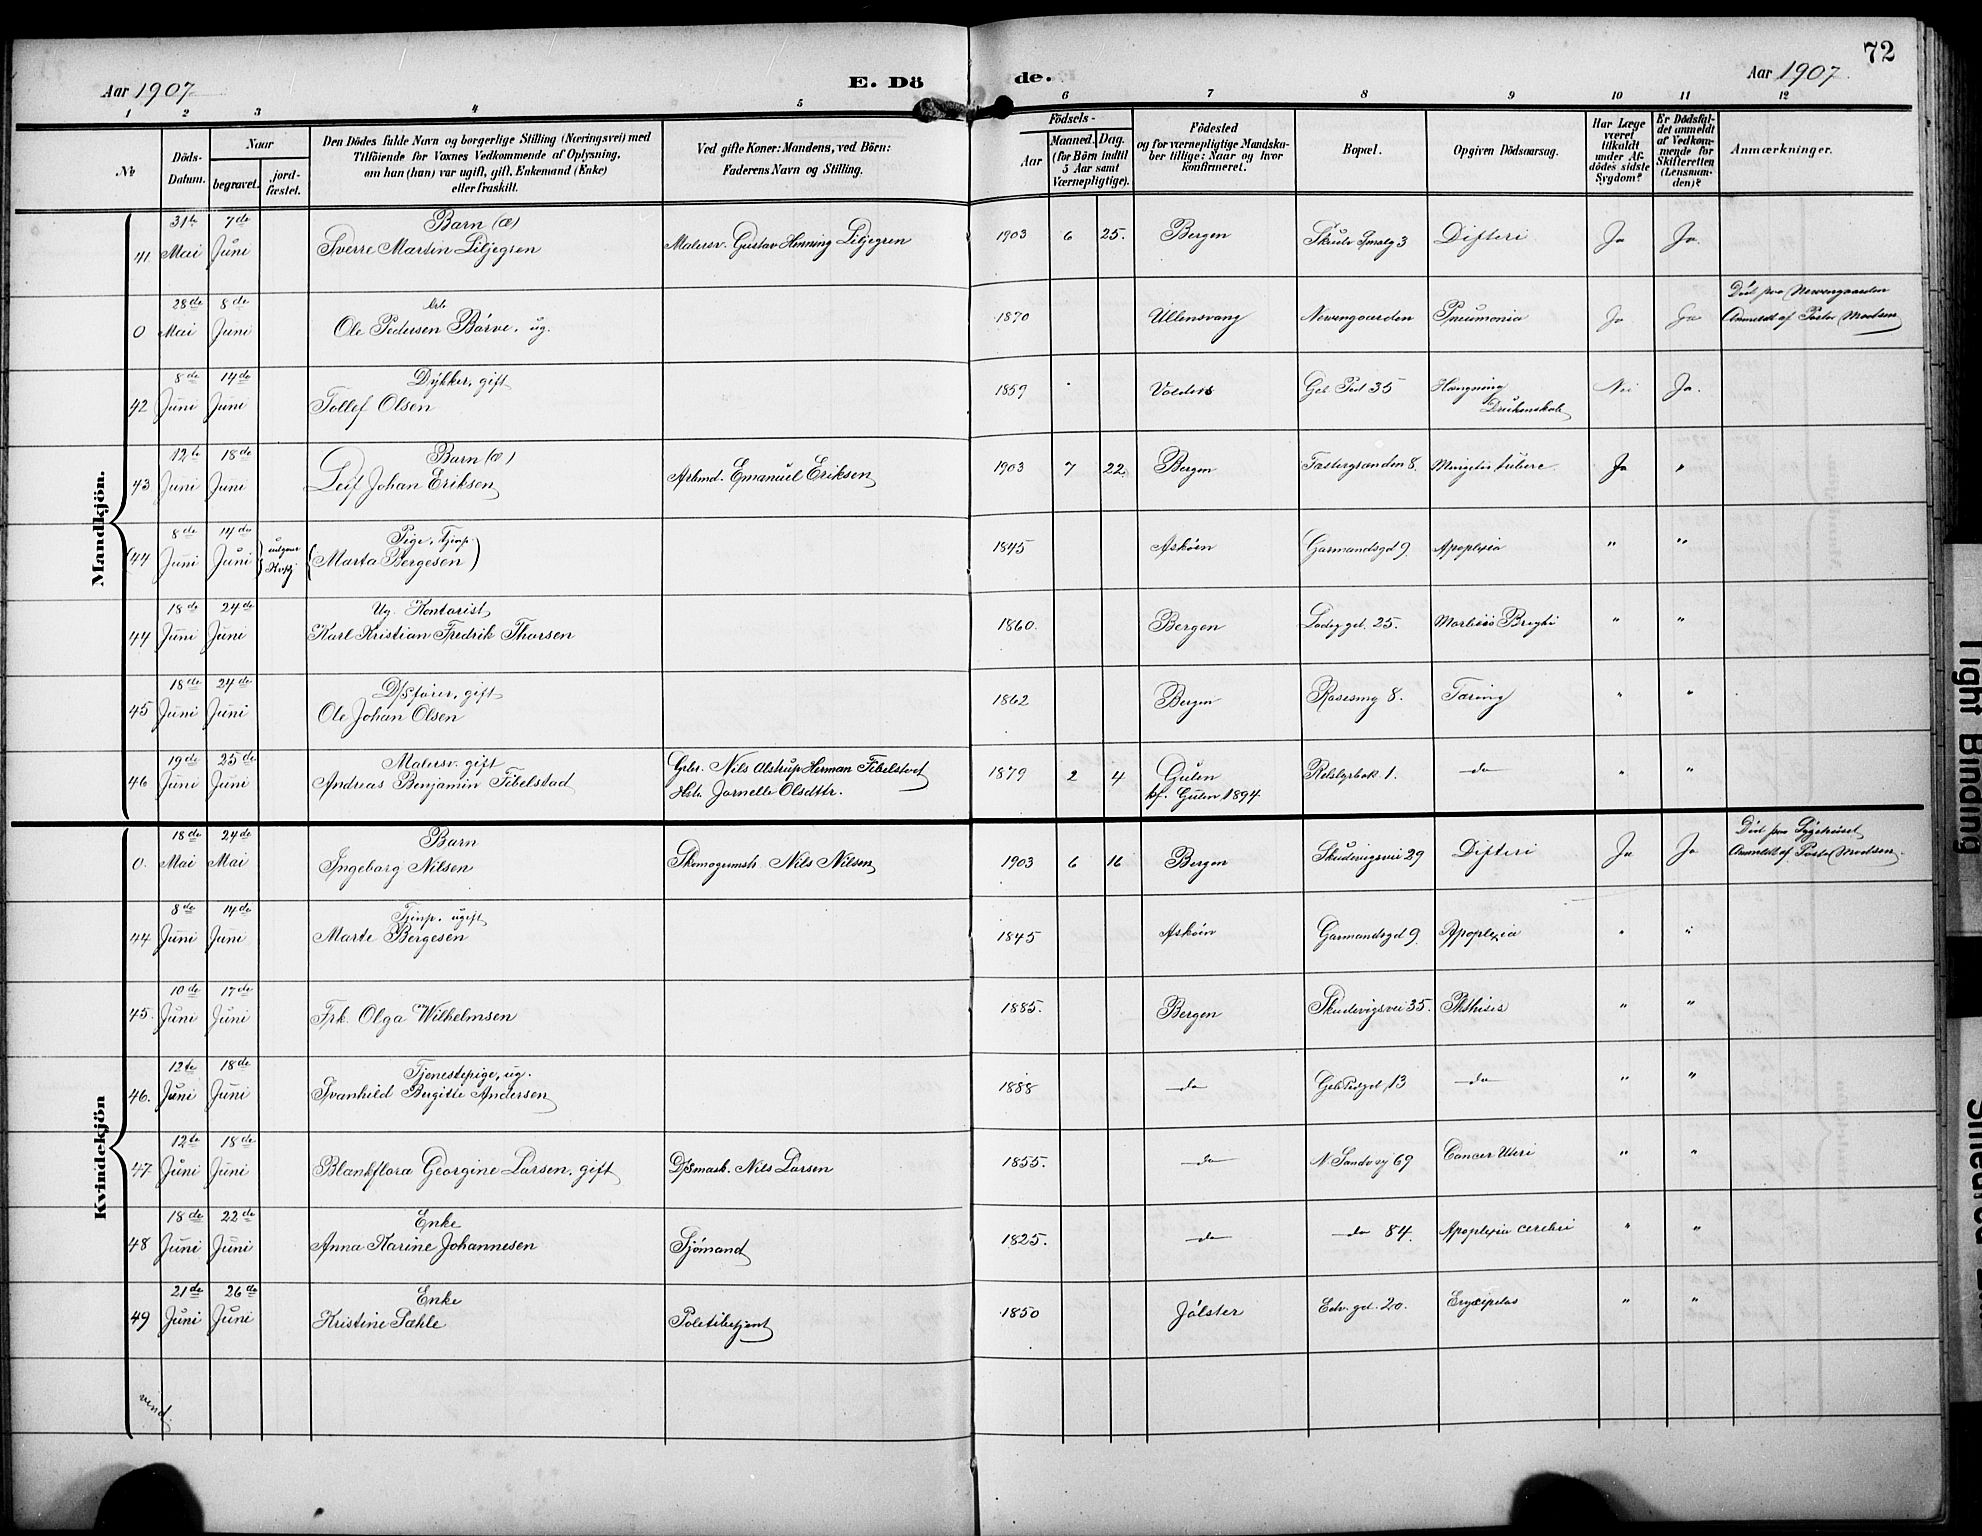 72
Aar 1907
E. Dö
de.
Aar 1907.
1 2 3 4 5 6 7 8 9 10 11 12
No
Döds-
Datum.
Naar
begravet.
jord-
fæstet.
Den Dödes fulde Navn og borgerlige Stilling (Næringsvei) med
Tilföiende for Voxnes Vedkommende af Oplysning,
om han (hun) var ugift, gift, Enkemand (Enke)
eller fraskilt.
Ved gifte Koner: Mandens, ved Börn:
Faderens Navn og Stilling.
Födsels-
Aar
Maaned.
Dag.
(for Börn indtil
5 Aar samt
Værnepligtige).
Födested
og for værnepligtige Mandska-
ber tillige: Naar og hvor
konfirmeret.
Bopæl.
Opgiven Dödsaarsag.
Har Læge
været
tilkaldt
under Af-
dödes sidste
Sygdom?
Er Dödsfal-
det anmeldt
af Vedkom-
mende for
Skifteretten
(Lensman-
den)?
Anmærkninger.
Mandkjön.
31te 7de Barn (æ)
41 Mai Juni Sverre Martin Liljegren Malersv. Gustav Henning Liljegren 1903 6 25. Bergen 3 Difteri Ja Ja.
28de 8de Arb.
0 Mai Juni Ole Pedersen Börve, ug. 1870 Ullensvang Nevengaarden Pneumonia Ja Ja
Död paa Nevengaarden
Anmeldt af Pastor Madsen
8de 14de Dykker, gift
42 Juni Juni Tollef Olsen 1859 Valders 35 Hængning Nei Ja.
Drukenskab
12te 18de Barn (æ)
43 Juni Juni Leif Johan Eriksen Arbmd. Emanuel Eriksen 1903 7 22. Bergen 8. tubere. Ja "
8de 14de Pige, Tjnp.
(44 Juni Juni } udgaar { Marta Bergesen) 1845 Asköen Garmandsgd 9 Apoplexia " "
18de 24de Ug. Kontorist
44 Juni Juni Karl Kristian Fredrik Thorsen 1860. Bergen 25. Morbus Brighi " "
18de 24de D/sförer, gift
45 Juni Juni Ole Johan Olsen 1862 Bergen Rosesmg 8. Tæring " "
19de 25de Malersv. gift
46 Juni Juni Andreas Benjamin Tibelstad
Gbr. Nils Alstrup Herman Tibelstad
Hst. Jornelle Olsdttr.
1879 2 4 Gulen 1. do " "
kf. Gulen 1894
Kvindekjön
18de 24de Barn
0. Mai Mai Ingeborg Nilsen Skomagermstr. Nils Nilsen 1903 6 16 Bergen Skudevigsvei 29 Difteri Ja Ja
Död paa Sygehuset
Anmeldt af Pastor Madsen.
8de 14de Tjnp. ugift
44 Juni Juni Marte Bergesen 1845 Asköen Garmandsgd 9. Apoplexia " "
10de 17de
45. Juni Juni Frk. Olga Wilhelmsen 1885. Bergen Skudevigsvei 35. Phthisis " "
12te 18de Tjenestepige, ug.
46. Juni Juni Svanhild Birgitte Andersen 1888 do 13 do " "
12te 18de
47. Juni Juni Blankflora Georgine Larsen, gift D/Smask. Nils Larsen 1855. do N. Sandvg 69 Cancer Uteri " "
18de 22de Enke
48 Juni Juni Anna Karine Johannesen Sjömand 1825. do do 84. Apoplexia cerebri " "
21de 26de Enke
49 Juni Juni Kristine Sæhle Politibetjent 1850 Jölster Edv. gd. 20. Erysipelas " "
vend.
Tight Binding